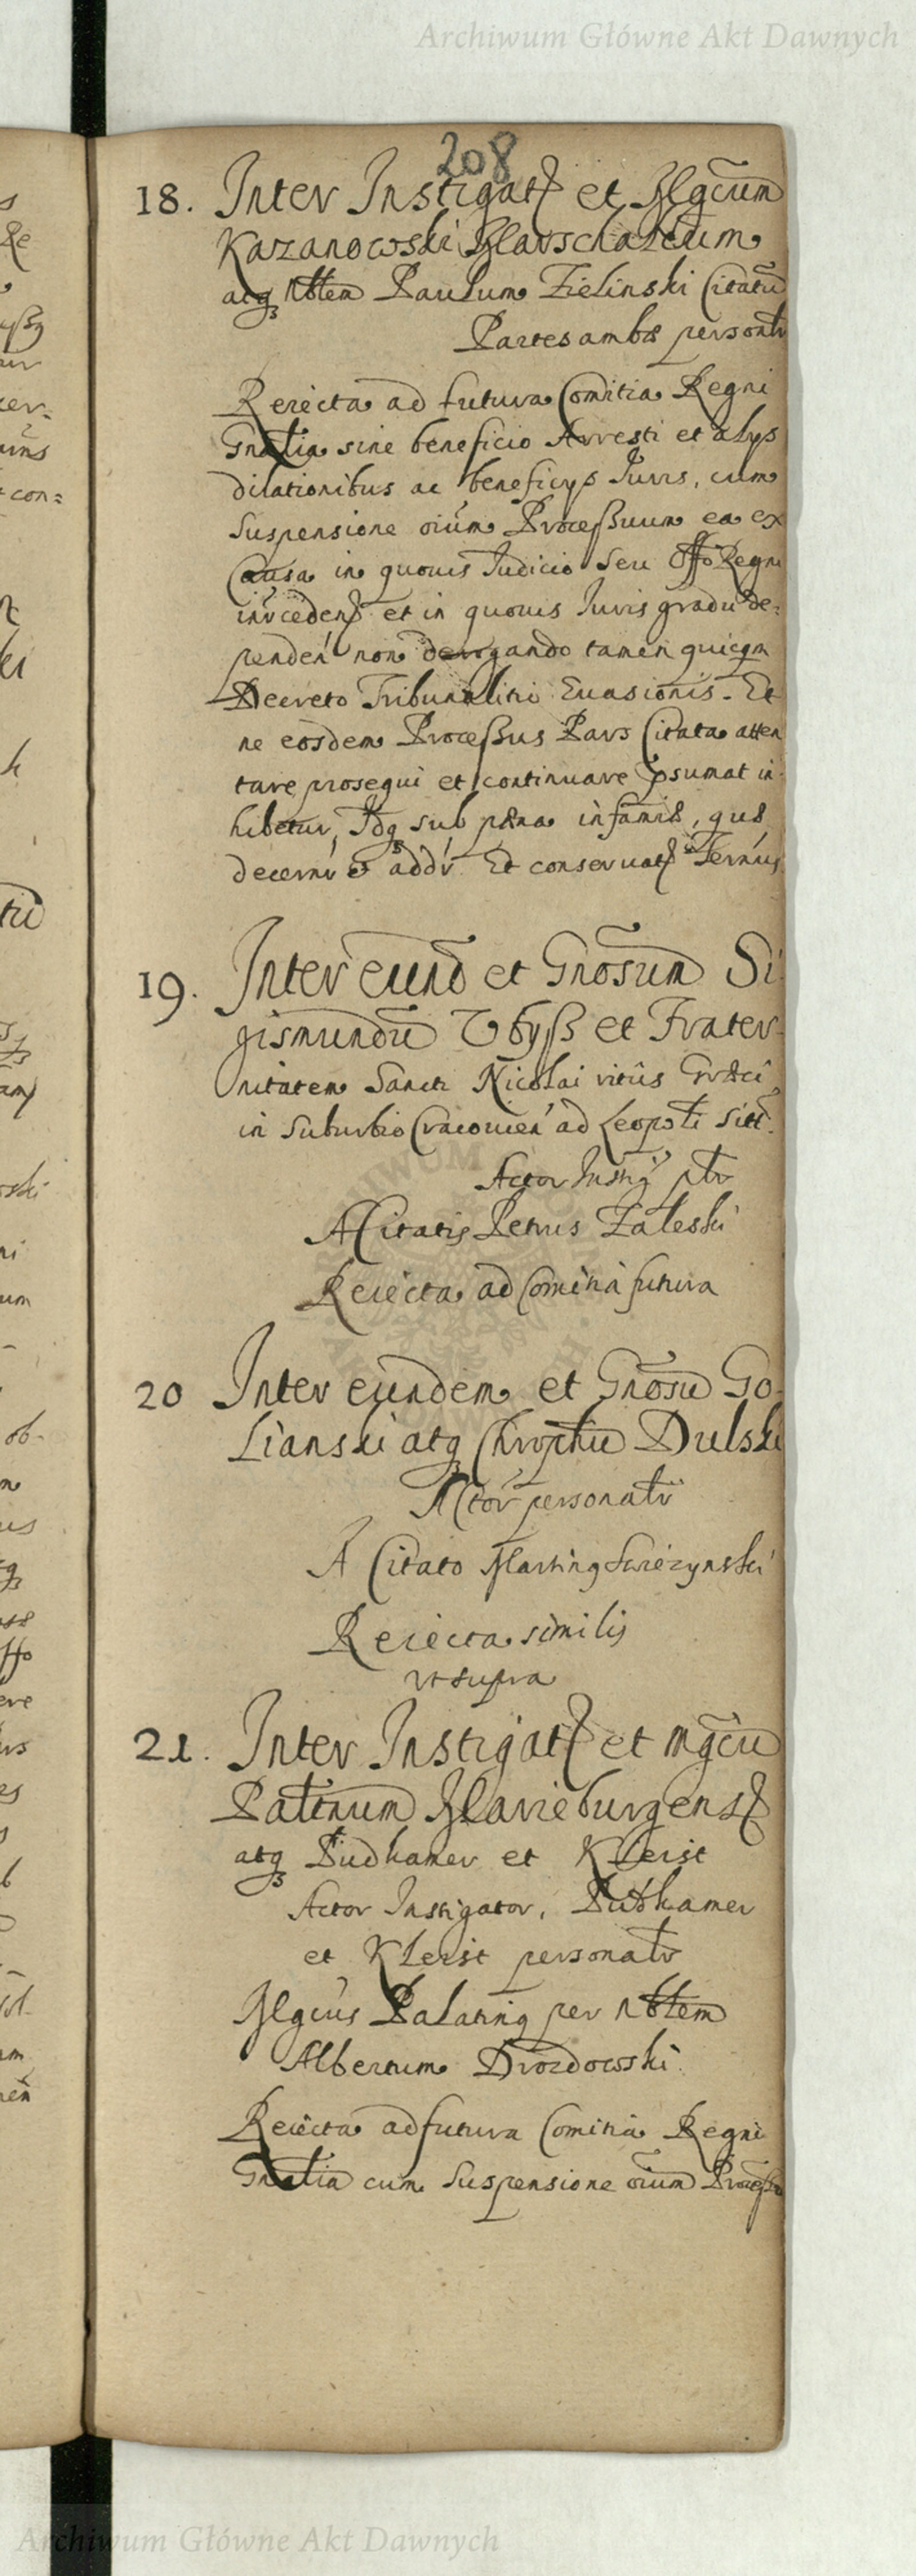 Archiwum Główne Akt Dawnych
208
18. Inter Instigat et Mgcum
Kazanowski Marschalcum
atq Nblem Paulum Zielinski Citatu
Partes ambæ personalr
Reiecta ad futura Comitia Regni
Gnalia sine beneficio Arresti et alys
dilationibus ac beneficys Juris, cum
suspensione oium Processuum ea ex
Causa in quouis Judicio seu Offo Regni
et in quouis Juris gradu de=
penden non derogando tamen quicqm
Decreto Tribunalitio Euasionis. Et
ne eosdem Processus Pars Citata atten
tare prosequi et continuare psumat in
hibetur, Idq sub pæna infamiæ, quæ
decernr et addr. Et conseruat Ternus
19. Inter eund et Gnosum Si
gismundu et Frater-
nitatem Sancti Nicolai ritus Græci
in Suburbio Cracouien ad Leopoli sitt.
Actor Instig plr
A Citatis Petrus Zaleski
Reiecta ad Comitia futura
20 Inter eundem et Gnosu Go-
Lianski atq Chrophu Dulski
Actor personalr
A Citato Martinq Swiezynski
Reiecta similis
vt supra
21. Inter Instigat et mgcu
Palinum Marieburgens
atq Pudkamer et Kleist
Actor Instigator, Putkamer
et Kleist personalr
Mgcus Palatinq per Nblem
Albertum Drozdowski
Reiecta ad futura Comitia Regni
Gnalia cum suspensione oium Processu
Archiwum Główne Akt Dawnych